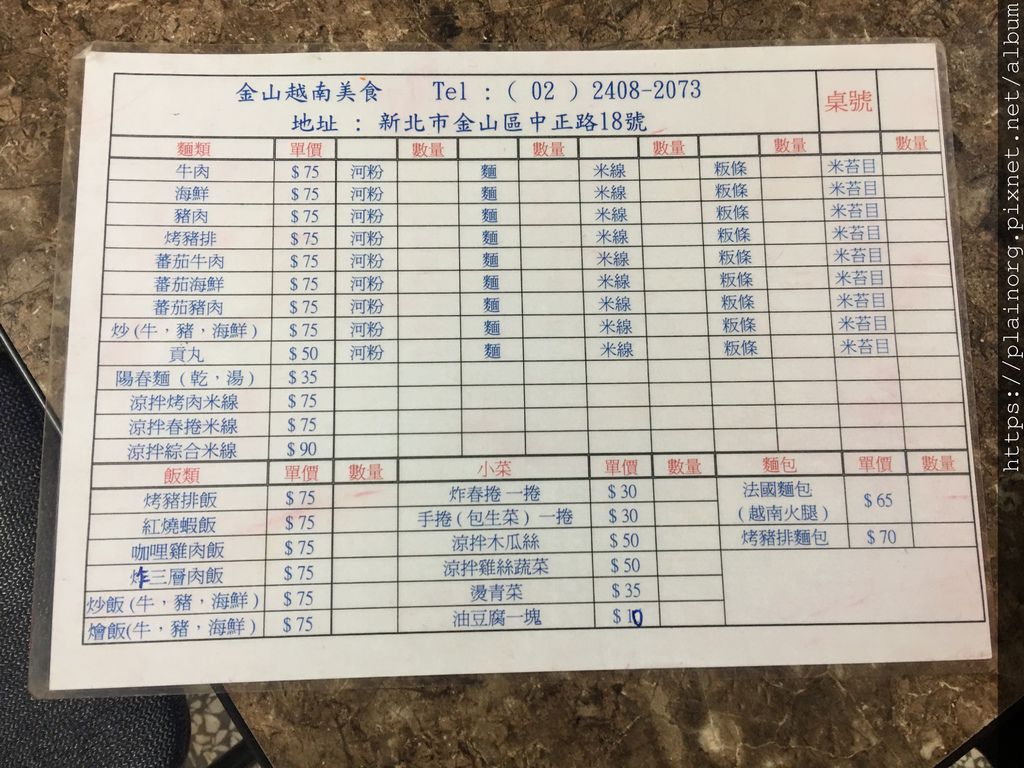 金山越南美食 Tel : ( 02 ) 2408-2073
地址 : 新北市金山區中正路18號
桌號
麵類 單價 數量 數量 數量 數量 數量
牛肉 $ 75 河粉 麵 米線 粄條 米苔目
海鮮 $ 75 河粉 麵 米線 粄條 米苔目
豬肉 $ 75 河粉 麵 米線 粄條 米苔目
烤豬排 $ 75 河粉 麵 米線 粄條 米苔目
蕃茄牛肉 $ 75 河粉 麵 米線 粄條 米苔目
蕃茄海鮮 $ 75 河粉 麵 米線 粄條 米苔目
蕃茄豬肉 $ 75 河粉 麵 米線 粄條 米苔目
炒(牛，豬，海鮮) $ 75 河粉 麵 米線 粄條 米苔目
貢丸 $ 50 河粉 麵 米線 粄條 米苔目
陽春麵 (乾，湯) $ 35
涼拌烤肉米線 $ 75
涼拌春捲米線 $ 75
涼拌綜合米線 $ 90
飯類 單價 數量 小菜 單價 數量 麵包 單價 數量
烤豬排飯 $ 75 炸春捲 一捲 $ 30 法國麵包 $ 65
紅燒蝦飯 $ 75 手捲(包生菜) 一捲 $ 30 (越南火腿)
咖哩雞肉飯 $ 75 涼拌木瓜絲 $ 50 烤豬排麵包 $ 70
炸三層肉飯 $ 75 涼拌雞絲蔬菜 $ 50
炒飯(牛，豬，海鮮) $ 75 燙青菜 $ 35
燴飯(牛，豬，海鮮) $ 75 油豆腐一塊 $ 10
https://plainorg.pixnet.net/album